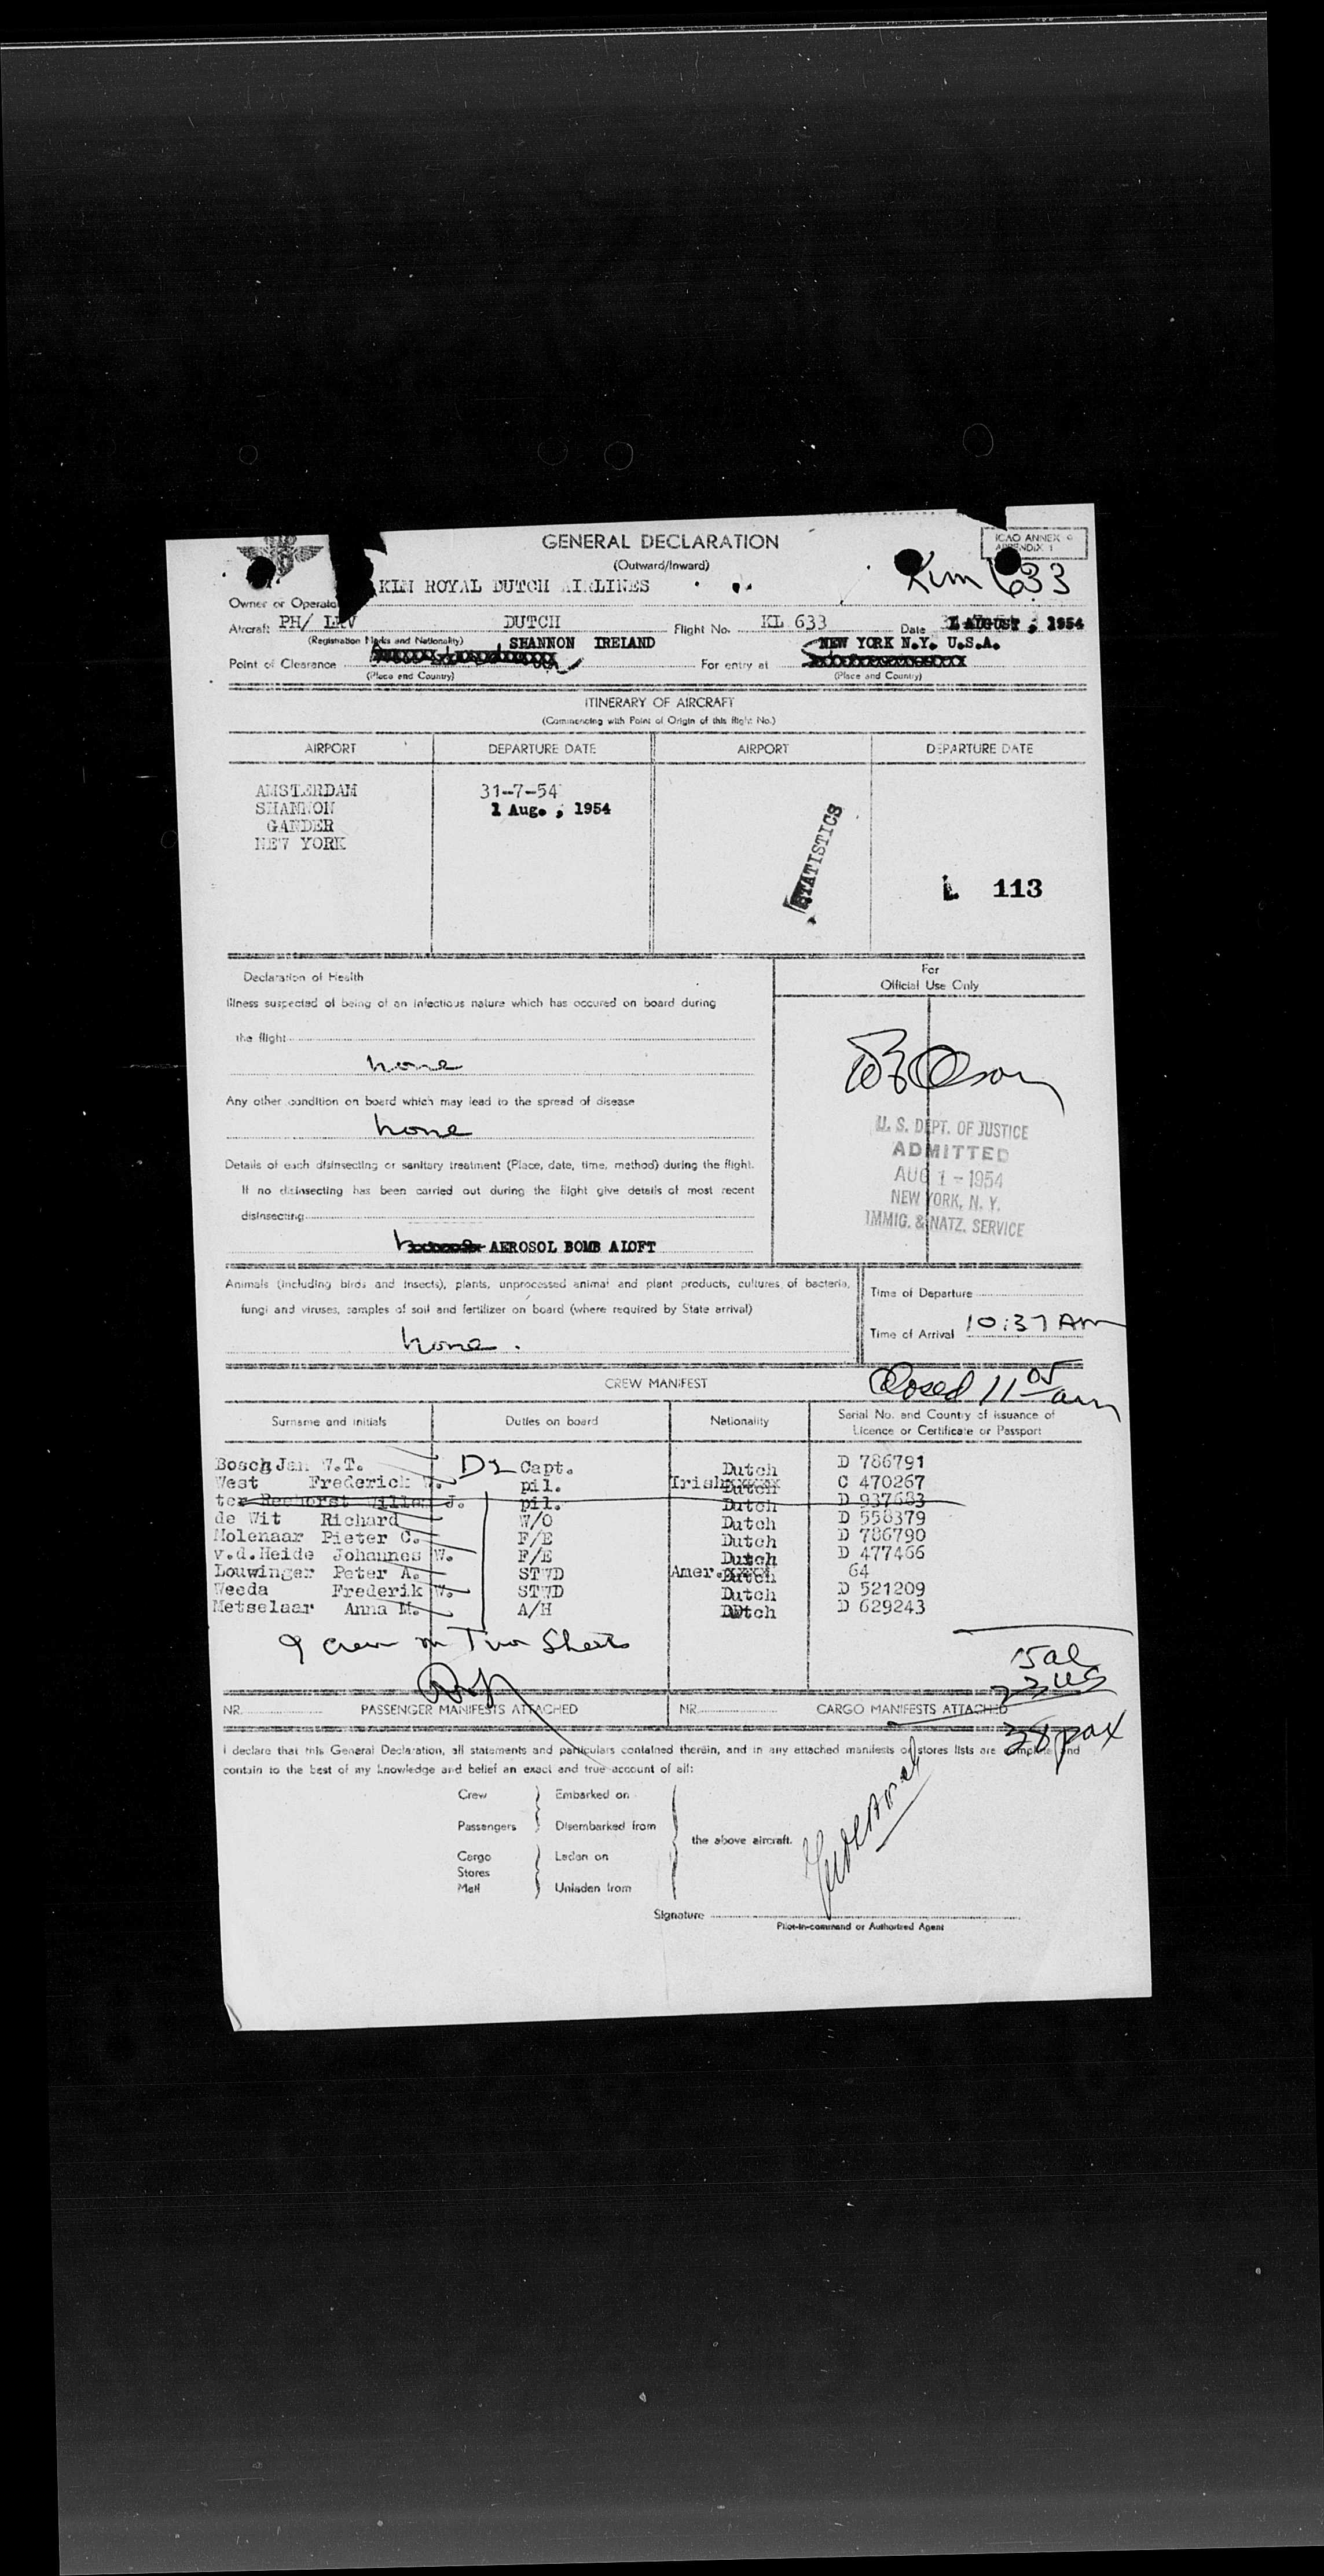 GENERAL DECLARATION
(Outward/Inward)
ICAO ANNEX 9
APPENDIX 1
Klm 633
Owner or Operator KLM ROYAL DUTCH AIRLINES
Aircraft PH/ DUTCH Flight No. KL 633 Date 1 AUGUST , 1954
(Registration Marks and Nationality) SHANNON IRELAND NEW YORK N.Y. U.S.A.
Point of Clearance For entry at
(Place and Country) (Place and Country)
ITINERARY OF AIRCRAFT
(Commencing with Point of Origin of this flight No.)
AIRPORT DEPARTURE DATE AIRPORT DEPARTURE DATE
AMSTERDAM 31-7-54
SHANNON 1 Aug. , 1954
GANDER
NEW YORK
STATISTICS
L 113
Declaration of Health
For
Official Use Only
Illness suspected of being of an infectious nature which has occured on board during
the flight
none
Any other condition on board which may lead to the spread of disease
none
Details of each disinsecting or sanitary treatment (Place, date, time, method) during the flight.
If no disinsecting has been carried out during the flight give details of most recent
disinsecting
AEROSOL BOMB ALOFT
Olson
U. S. DEPT. OF JUSTICE
ADMITTED
AUG 1 - 1954
NEW YORK, N. Y.
IMMIG. & NATZ. SERVICE
Animals (including birds and insects), plants, unprocessed animal and plant products, cultures of bacteria,
fungi and viruses, samples of soil and fertilizer on board (where required by State arrival)
none .
Time of Departure
Time of Arrival 10:37 Am
CREW MANIFEST
Closed 11 05 am
Surname and initials Duties on board Nationality Serial No. and Country of issuance of
Licence or Certificate or Passport
Bosch Jan W.T. Capt. Dutch D 786791
West Frederick W. pil. Irish Dutch C 470267
ter Willem J. pil. Dutch D 937683
de Wit Richard W/O Dutch D 558379
Molenaar Pieter C. F/E Dutch D 786790
v.d.Heide Johannes W. F/E Dutch D 477466
Louwinger Peter A. STWD Amer. Dutch 64
Weeda Frederik W. STWD Dutch D 521209
Metselaar Anna M. A/H Dutch D 629243
9 crew on Two Sheets
15 al
23 us
38 pax
NR. PASSENGER MANIFESTS ATTACHED NR. CARGO MANIFESTS ATTACHED
I declare that this General Declaration, all statements and particulars contained therein, and in any attached manifests or stores lists are complete and
contain to the best of my knowledge and belief an exact and true account of all:
Crew Embarked on
Passengers Disembarked from
the above aircraft.
Cargo Laden on
Stores
Mail Unladen from
Signature
Pilot-in-command or Authorized Agent